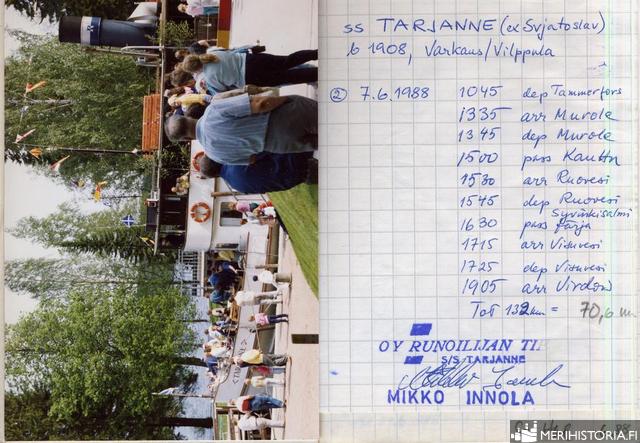 ss TARJANNE (ex Svjatoslav)
b 1908, Varkaus/Vilppula
② 7.6.1988 1045 dep Tammerfors
1335 arr Murole
1345 dep Murole
1500 pass Kauttu
1530 arr Ruovesi
1545 dep Ruovesi
Syvinkisalmi
1630 pass färja
1715 arr Visuvesi
1725 dep Visuvesi
1905 arr Virdois
Tot 132 km = 70,6 m
OY RUNOILIJAN TI
S/S TARJANNE
MIKKO INNOLA
MERIHISTORIA.FI